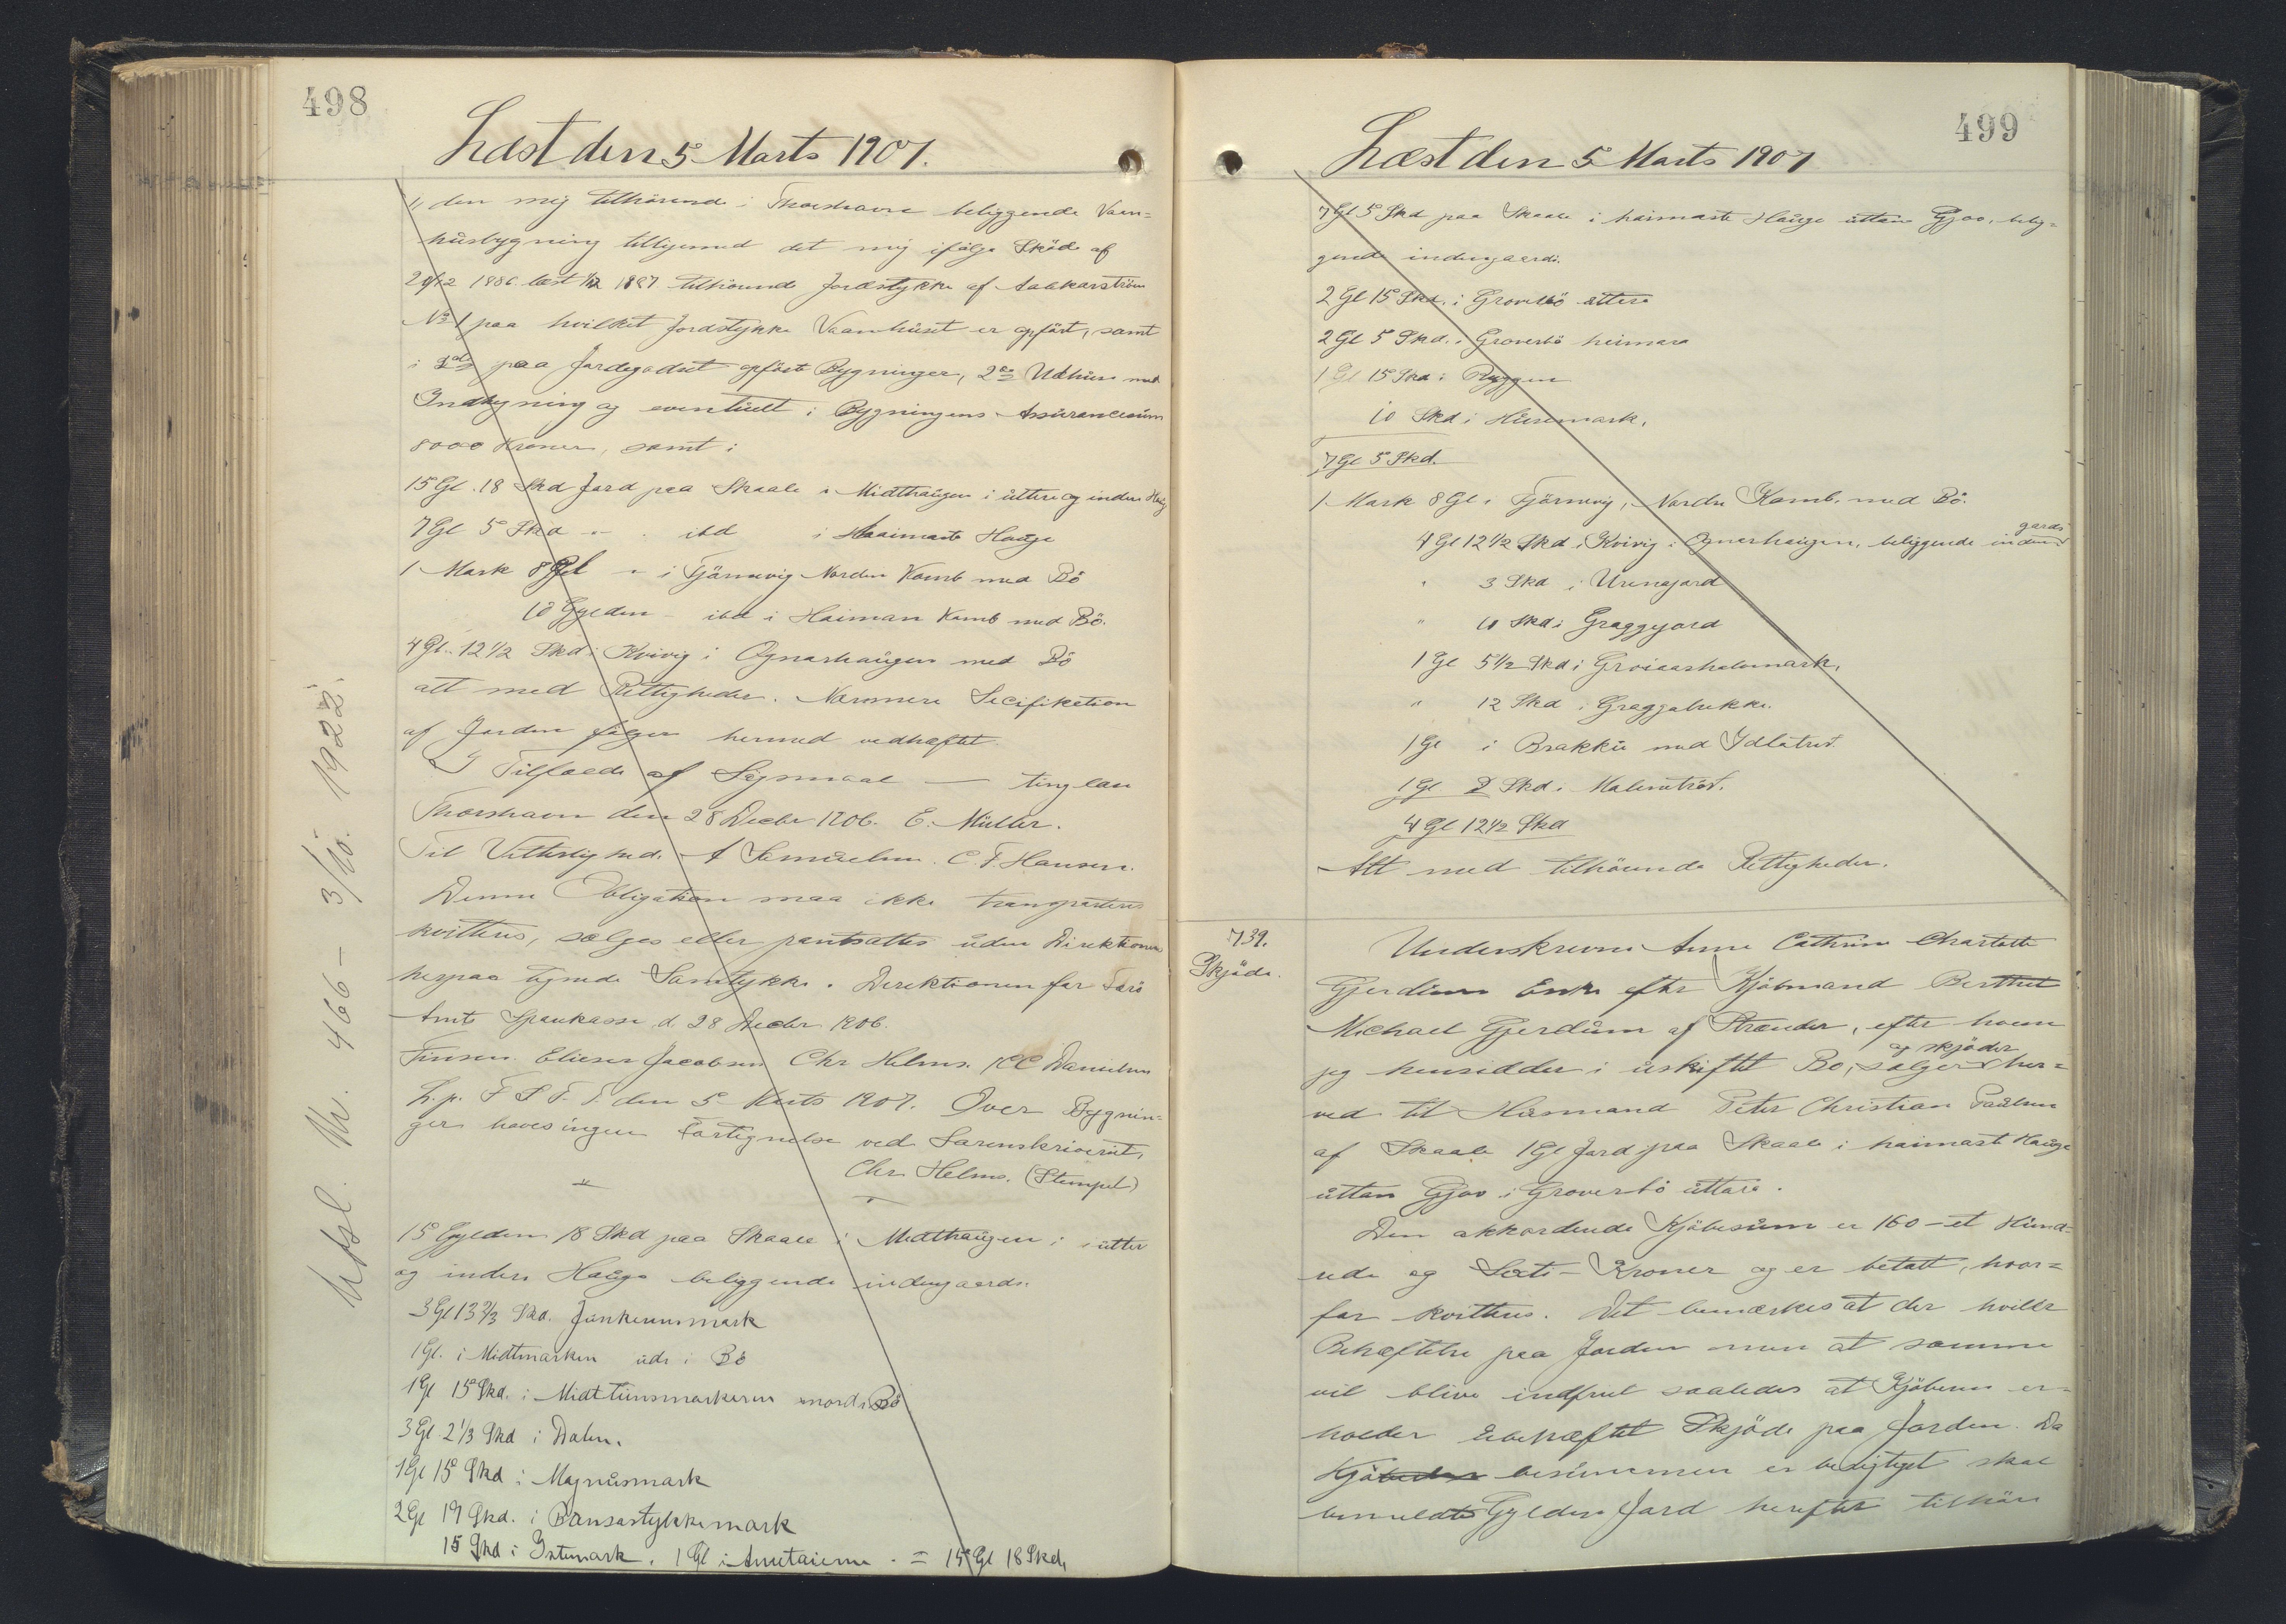 498
Læst den 5 Marts 1907.
" den mig tilhörende i Thorshavn beliggende Vaan-
husbygning tilligemed det mig ifölge Sköde af
29/12 1886 læst 1/2 1887 tilhörende Jordstykke af Aakarström
No 1 paa hvilket Jordstykke Vaanhuset er opfört, samt
i paa Jordegodset opfört Bygninger, 2de Udhuse med
Indbygning og eventuelt i Bygningens Assurancesum
8000 Kroner, samt i
15 Gl. 18 Skd Jord paa Skaale i Midthaugen i uttere og indere Haug
7 Gl 5 Skd " - ibd i Haaimaste Hauge
1 Mark 8 Gl " i Tjörnevig Nordre Kamb med Bö
10 Gylden - ibd i Haiman Kamb med Bö.
4 Gl. 12 1/2 Skd i Kvivig i Ognarhaugen med Bö
alt med Rettigheder. Nærmere Secifikation
af Jorden fölger hermed vedhæftet.
I Tilfælde af Sögsmaal — ting lau
Thorshavn den 28 Decbr 1906. E. Müller.
Til Vitterlighed. A Samuelsen. C. F. Hansen.
Denne Obligation maa ikke transporteres
kvitteres, sælges eller pantsættes uden Direktionens
herpaa tegnede Samtykke. Direktionen for Færö
Amts Sparekasse, d. 28 Decbr 1906.
Finsen. Elieser Jacobsen Chr Helms. Danielsen
L. p. F S T. T. den 5 Marts 1907. Over Bygnin-
ger haves ingen Fortegnelse ved Sorenskriveriet,
Chr. Helms. (Stempel)
15 Gylden 18 Skd paa Skaale i Midthaugen i utter
og indere Hauge beliggende indengaards.
3 Gl 13 2/3 Skd. Junkerinsmark
1 Gl. i Midtmarken ude i Bö
1 Gl 15 Skd. i Midttunsmarkaren nord i Bö
3 Gl. 2 1/3 Skd i Dalen.
1 Gl 15 Skd i Magnusmark
2 Gl 19 Skd. i Bansastykkemark
15 Skd i Istemark. 1 Gl i = 15 Gl 18 Skd,
Udsl. Nr. 466 - 3/10. 1922.
499
Læst den 5 Marts 1907
7 Gl 5 Skd paa Skaale i haimaste Hauge uttan Gjov, belig-
gende indengaards.
2 Gl 15 Skd. i Groverbö uttere
2 Gl 5 Skd. i Groverbö heimara
1 Gl 15 Skd i Ryggen
10 Skd i Husemark.
7 Gl 5 Skd.
1 Mark 8 Gl. i Tjörnevig, Nordre Kamb. med Bö.
4 Gl 12 1/2 Skd i Kvivig i Ognarhaugen, beliggende inden
gards
" 3 Skd i Urengjord
" 10 Skd i Graggejord
1 Gl 5 1/2 Skd i Groiaarholmmark.
" 12 Skd i Graggabrekke.
1 Gl i Brakku med Idlatröd.
1 Gl 2 Skd. i Malentröd.
4 Gl 12 1/2 Skd
Alt med tilhörende Rettigheder.
739.
Skjöde.
Underskrevne Anne Cathrine Charlotte
Gjerdum Enke efter Kjöbmand Berthel
Michael Gjerdum af Strender, efter hvem
jeg hensidder i uskiftet Bo, sælger
og skjöder
her-
ved til Husmand Peter Christian Paulsen
af Skaale 1 Gl Jord paa Skaale i haimast Hauge
uttan Gjov i Groverbö uttara.
Den akkorderede Kjöbesum er 160 - et Hund-
rede og Seksti - Kroner og er betalt, hvor-
for kvitteres. Det bemærkes at der hviler
Behæftelse paa Jorden men at samme
vil blive indfriet saaledes at Kjöberen er-
holder ubehæftet Skjöde paa Jorden. Da
Kjöbesummen er berigtiget skal
bemeldte Gylden Jord herefter tilhöre